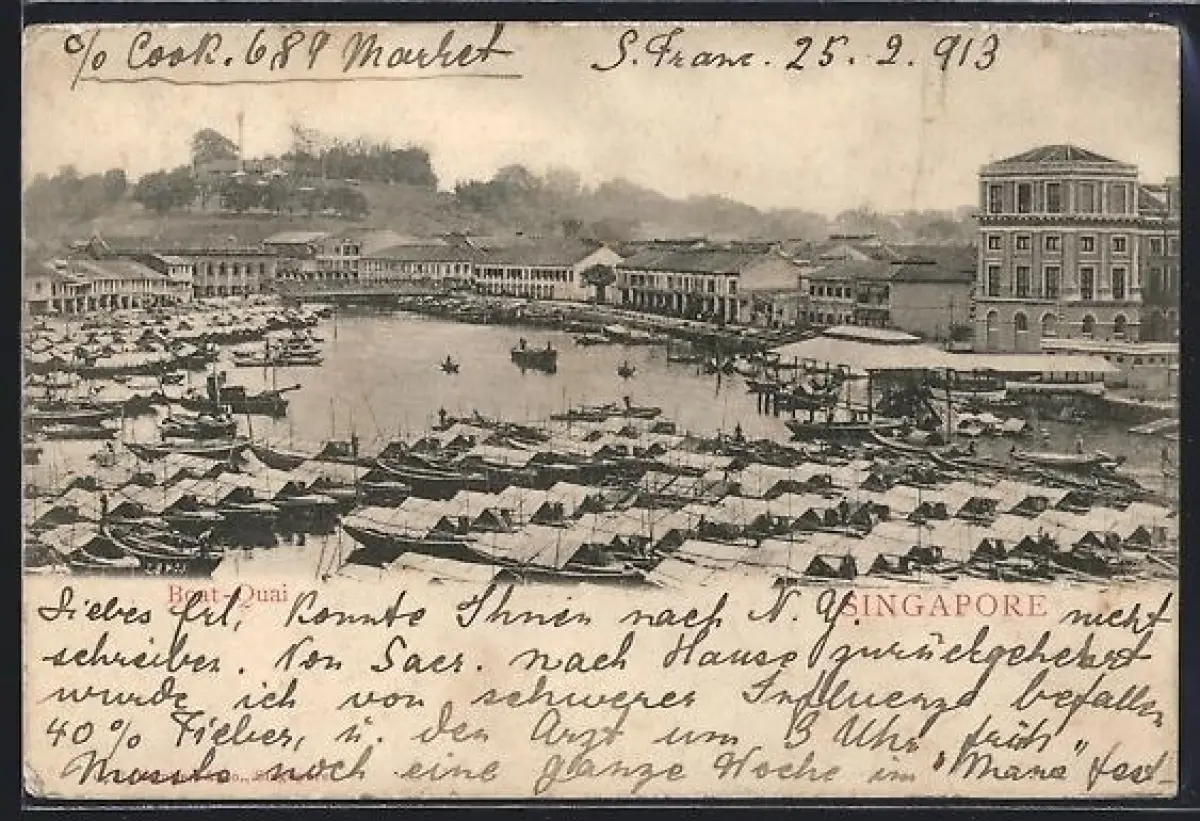 c/o Cook. 689 Market S. Franc. 25. 2. 913
Boat-Quai
SINGAPORE
Liebes Frl, Konnte Ihnen nach N. Y. nicht
schreiben. Von Sacr. nach Hause zurückgekehrt
wurde ich von schwerer Influenza befallen
40% Fieber, u. den Arzt um 3 Uhr früh
Musste noch eine ganze Woche im "Manx" fest-